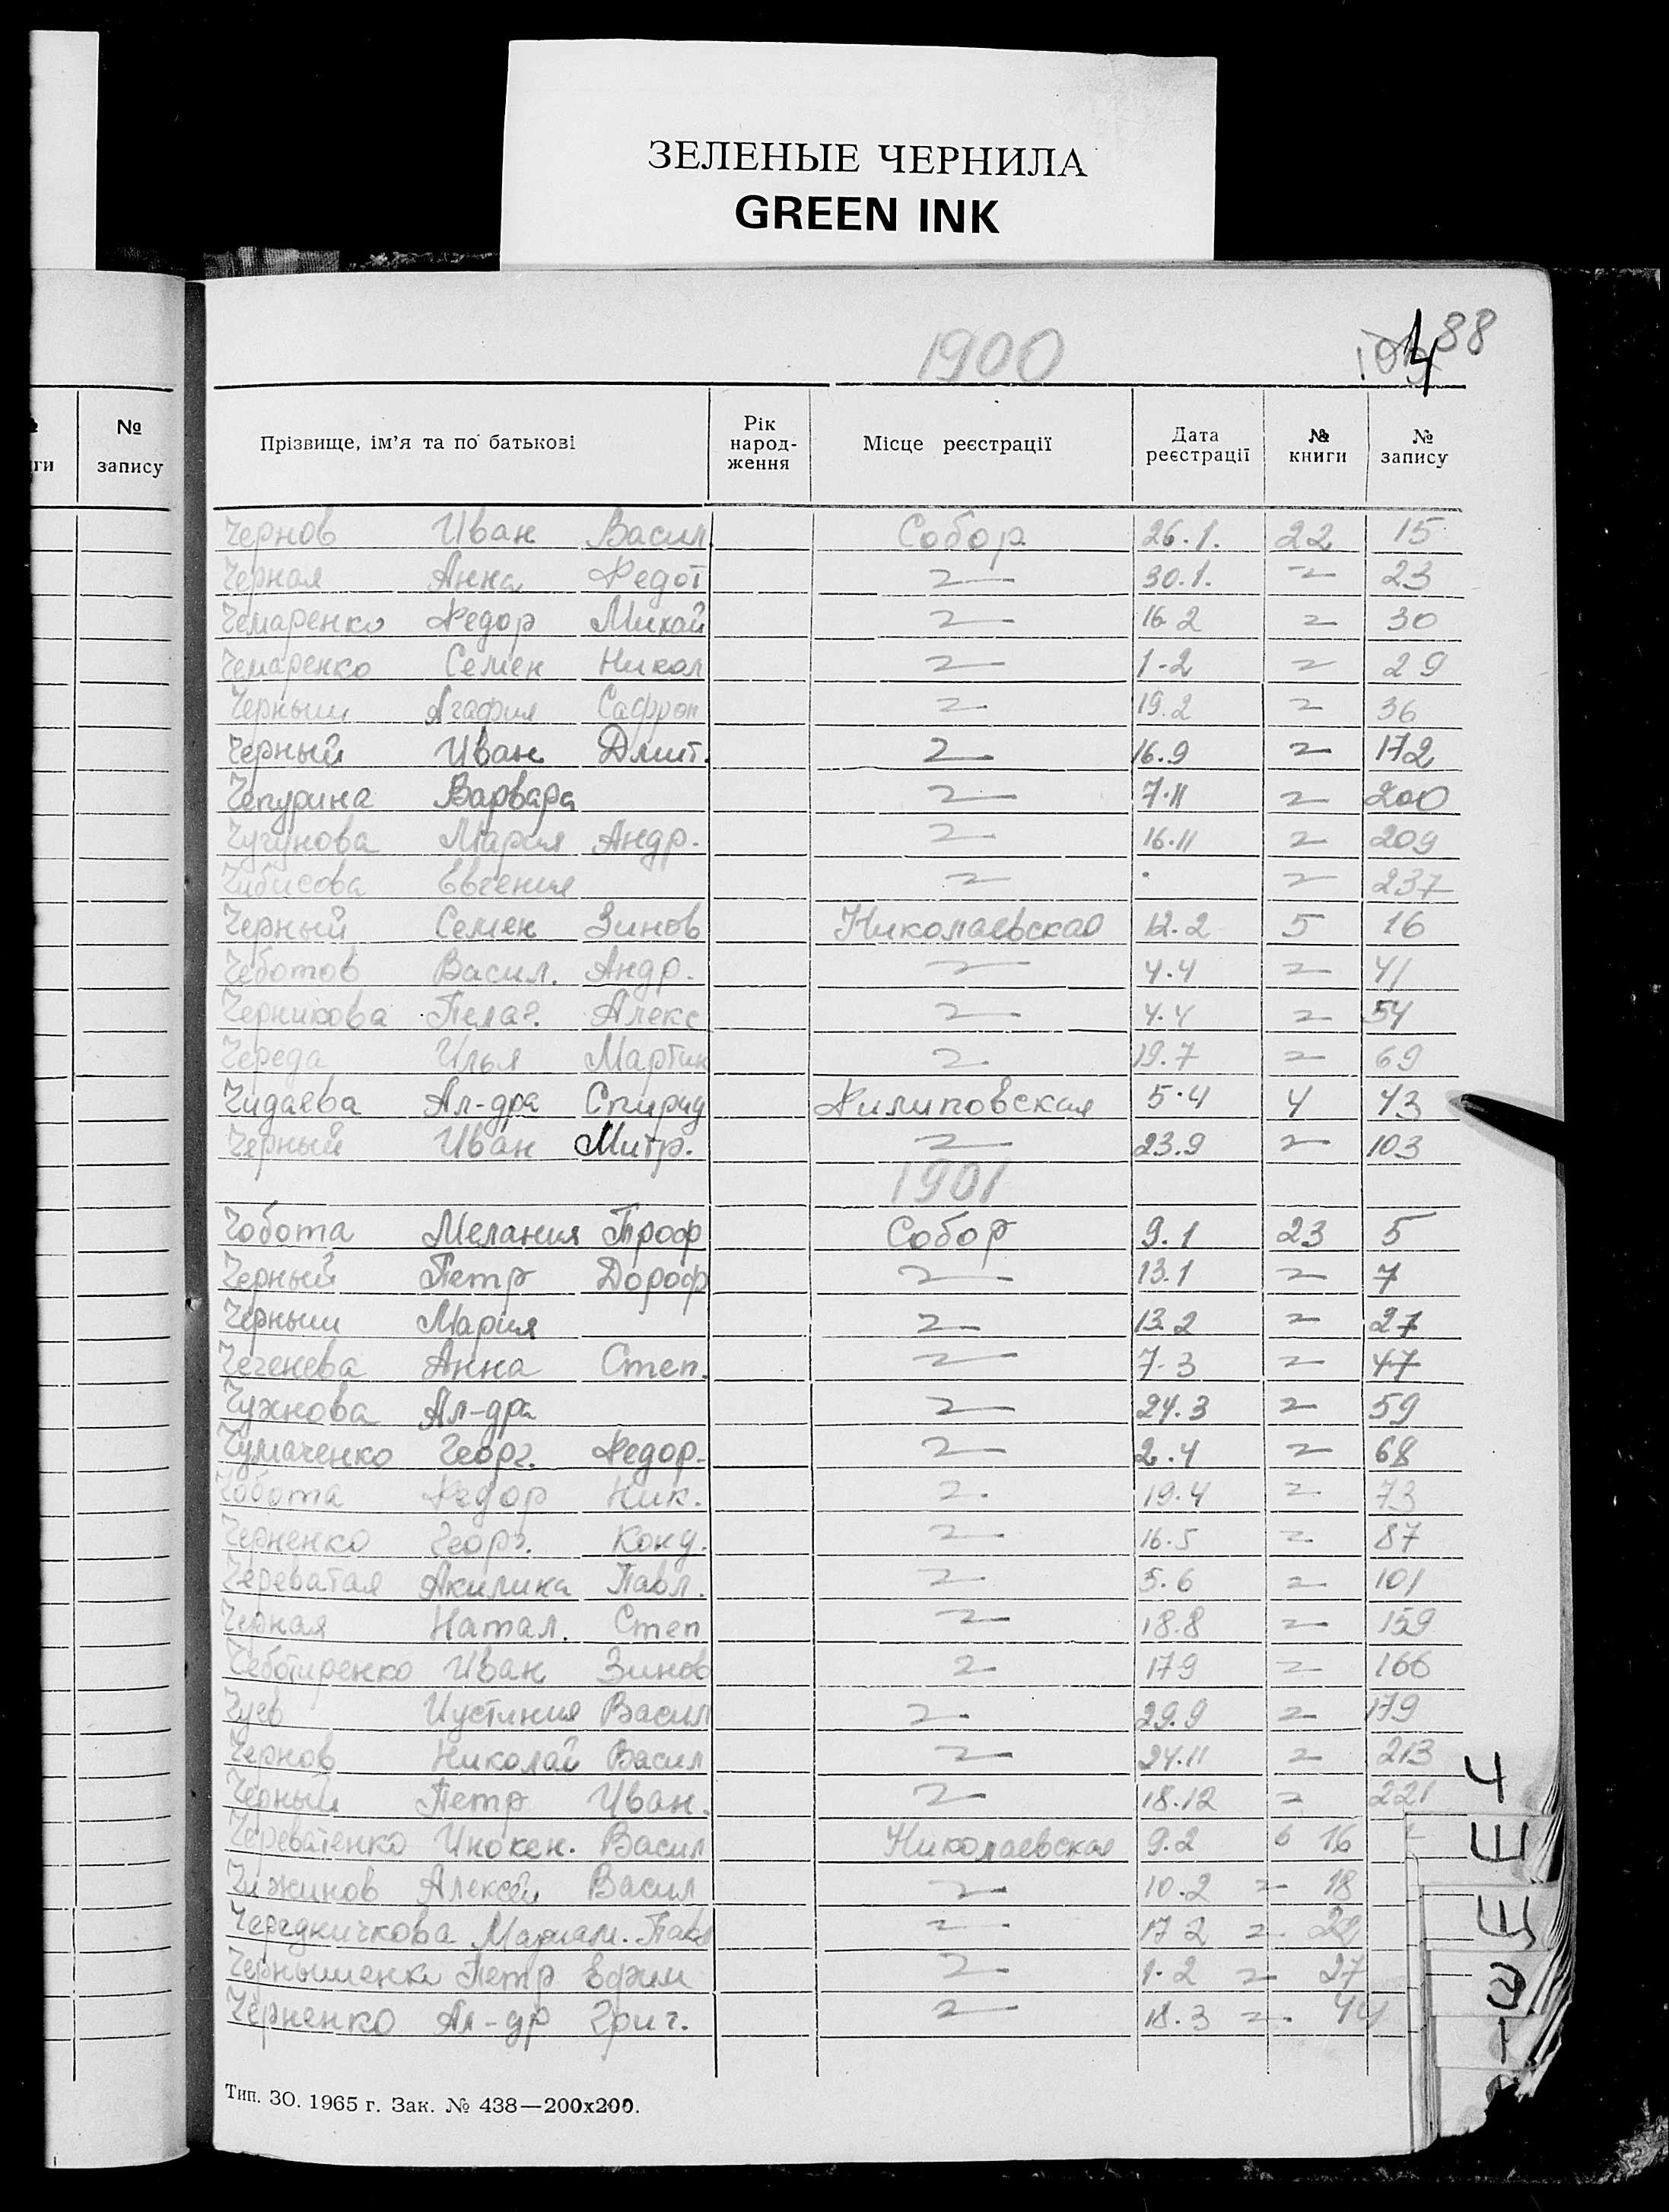 ЗЕЛЕНЫЕ ЧЕРНИЛА
GREEN INK
1900
88
№ запису
Прізвище, ім'я та по батькові Рік народ-ження Місце реєстрації Дата реєстрації № книги № запису
Чернов Иван Васил. Собор 26.1. 22 15
Черная Анна Федот 〃 30.1. 〃 23
Чемаренко Федор Михай 〃 16 2 〃 30
Чемаренко Семен Никол 〃 1-2 〃 29
Черныш Агафия Сафрон 〃 19.2 〃 36
Черный Иван Дмит. 〃 16.9 〃 172
Чепурина Варвара 〃 7.11 〃 200
Чугунова Мария Андр. 〃 16.11 〃 209
Чибисова Евгения 〃 〃 237
Черный Семен Зинов Николаевская 12.2 5 16
Чеботов Васил. Андр. 〃 4.4 〃 41
Черникова Пелаг. Алекс 〃 4.4 〃 54
Череда Илья Мартин 〃 19.7 〃 69
Чидаева Ал-дра Спирид Филиповская 5.4 4 43
Черный Иван Митр. 〃 23.9 〃 103
1901
Чобота Мелания Троф Собор 9.1 23 5
Черный Петр Дороф 〃 13.1 〃 7
Черныш Мария 〃 13.2 〃 27
Чегенева Анна Степ. 〃 7-3 〃 47
Чужнова Ал-дра 〃 24.3 〃 59
Чумаченко Георг. Федор. 〃 2.4 〃 68
Чобота Федор Ник. 〃 19.4 〃 73
Черненко Георг. Конд. 〃 16.5 〃 87
Череватая Акилина Павл. 〃 5.6 〃 101
Черная Натал. Степ 〃 18.8 〃 159
Чеботаренко Иван Зинов 〃 17 9 〃 166
Чуев Иустиния Васил 〃 29.9 〃 179
Чернов Николай Васил 〃 24.11 〃 213
Черный Петр Иван. 〃 18.12 〃 221
Череватенко Инокен. Васил Николаевская 9.2 6 16
Чижинов Алексей Васил 〃 10.2 〃 18
Чередничкова Мариам. Павл 〃 17 2 〃 22
Чернышенко Петр Ефим 〃 1.2 〃 27
Черненко Ал-др Григ. 〃 18.3 〃 44
Ч
Ш
Щ
Э
Тип. ЗО. 1965 г. Зак. № 438—200х200.